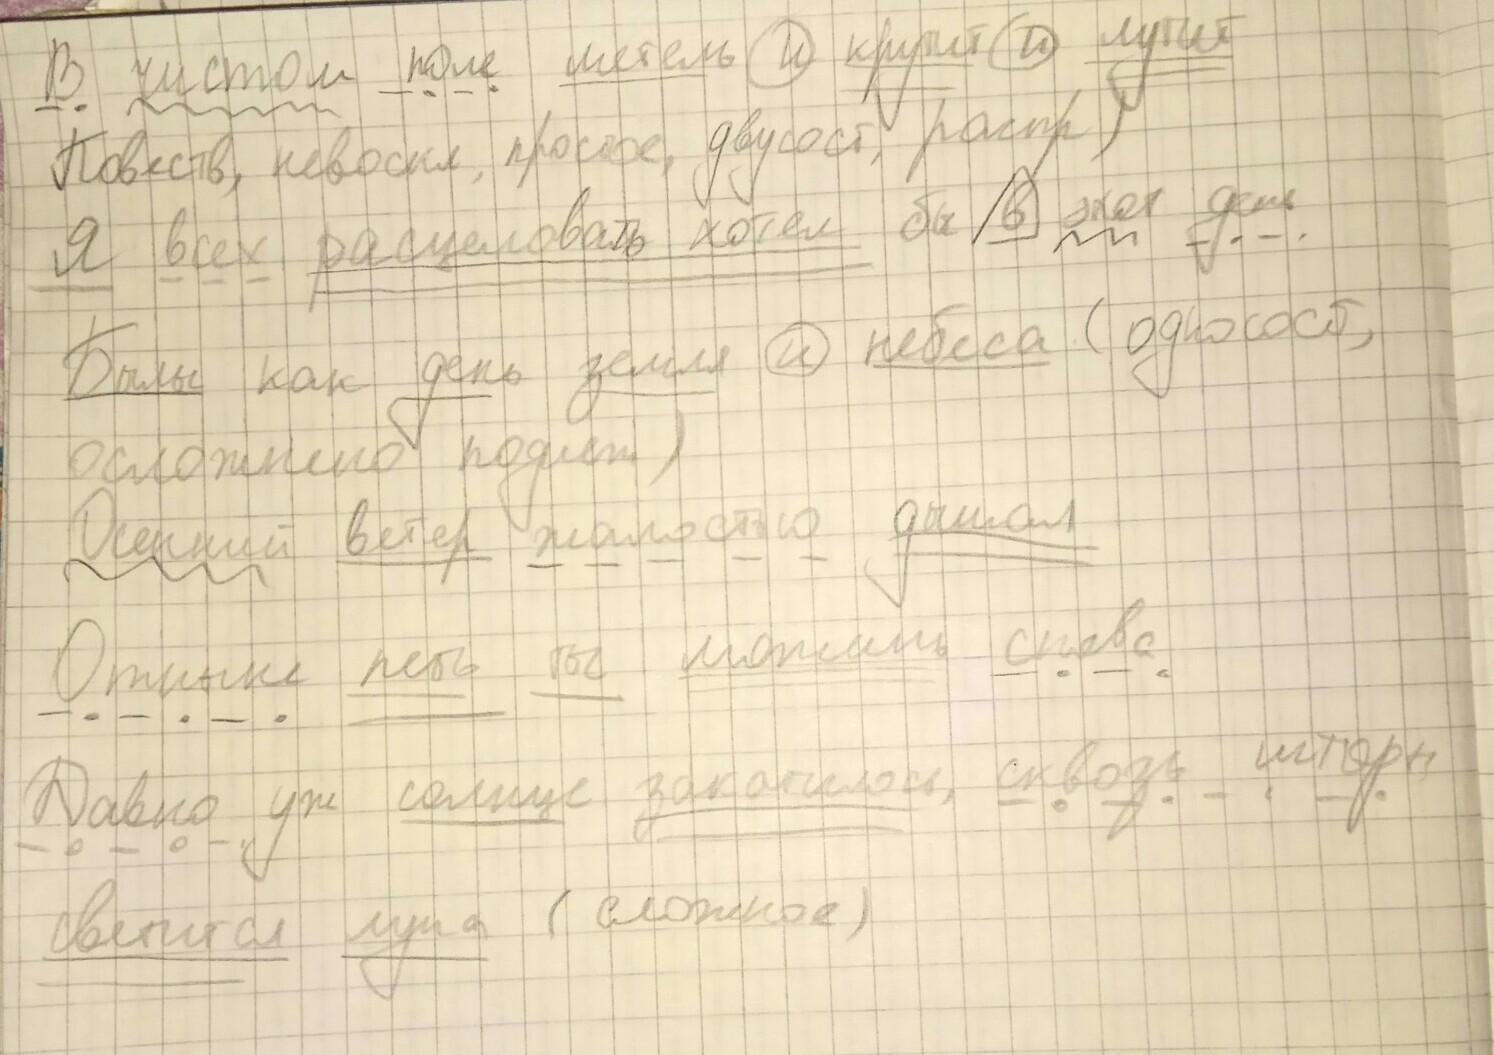 В чистом поле метель и крутит и лутит
Повеств, невоскл, простое, двусост, распр)
Я всех расцеловать хотел бы в этот день
Былы как день земля и небеса (односост,
осложнено подлеж)
Осенний ветер жалостью дышал
Отныне петь ты можешь снова
Давно уж солнце закатилось, сквозь шторы
светится луна (сложное)